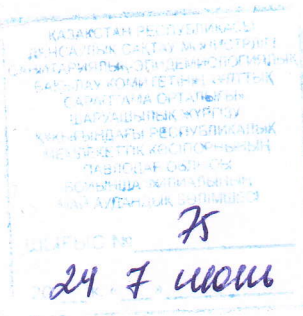 ҚАЗАҚСТАН РЕСПУБЛИКАСЫ
ДЕНСАУЛЫҚ САҚТАУ МИНИСТРЛІГІ
САНИТАРИЯЛЫҚ-ЭПИДЕМИОЛОГИЯЛЫҚ
БАҚЫЛАУ КОМИТЕТІНІҢ ҰЛТТЫҚ
САРАПТАМА ОРТАЛЫҒЫ
ШАРУАШЫЛЫҚ ЖҮРГІЗУ
ҚҰҚЫҒЫНДАҒЫ РЕСПУБЛИКАЛЫҚ
МЕМЛЕКЕТТІК КӘСІПОРНЫНЫҢ
ПАВЛОДАР ОБЛЫСЫ
БОЙЫНША ФИЛИАЛЫНЫҢ
МАЙ АУДАНДЫҚ БӨЛІМШЕСІ
№ 75
24 7 июнь